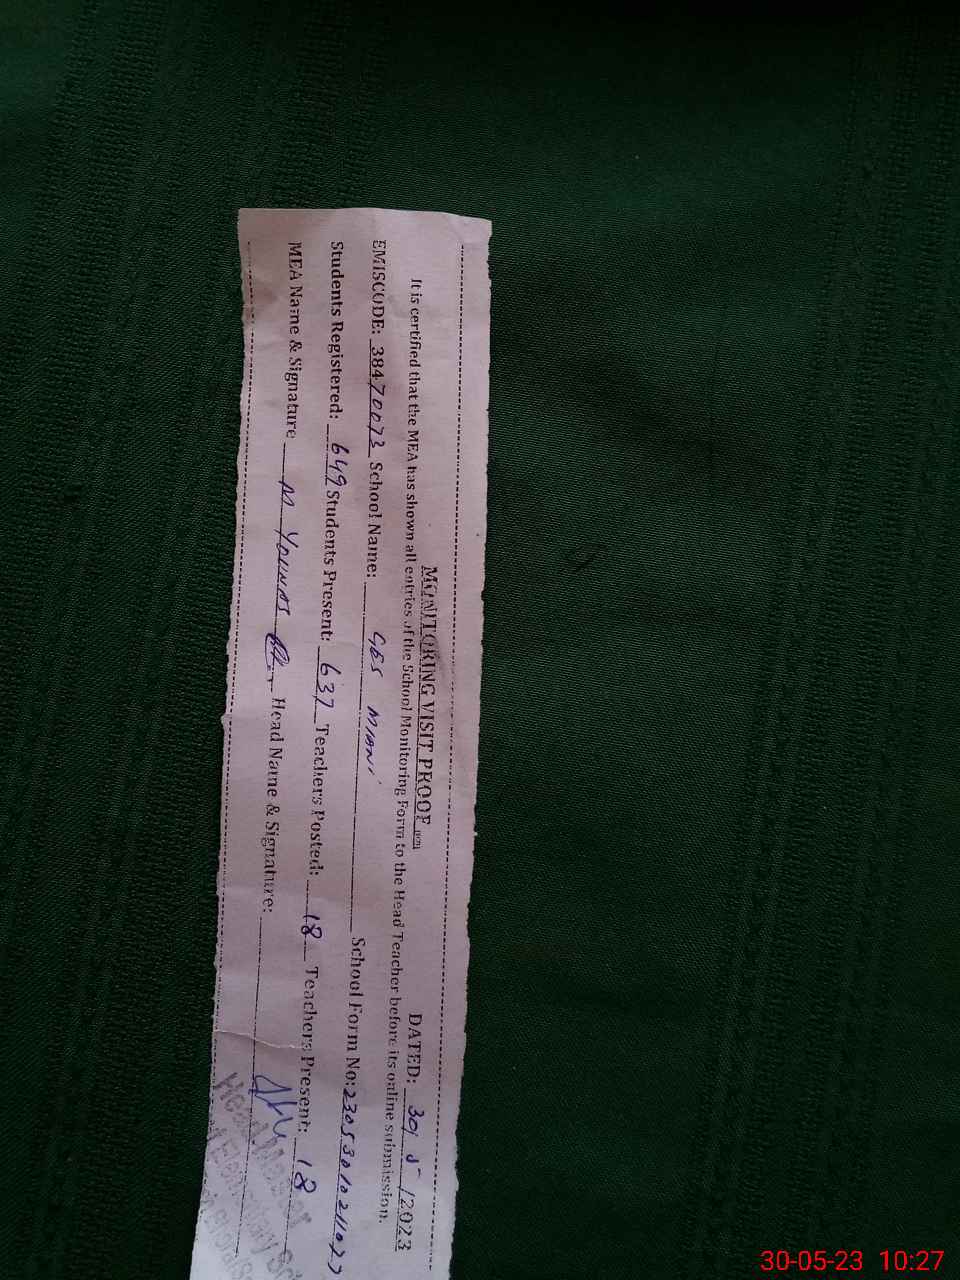 MONITORING VISIT PROOF
DATED: 30/5/2023
It is certified that the MEA has shown all entries of the School Monitoring Form to the Head Teacher before its online submission.
EMISCODE: 38470073 School Name: GES Miani School Form No: 
Students Registered: 649 Students Present: 637 Teachers Posted: 18 Teachers Present: 18
MEA Name & Signature M YOUNAS Head Name & Signature:
Head Master
Elementary
30-05-23 10:27